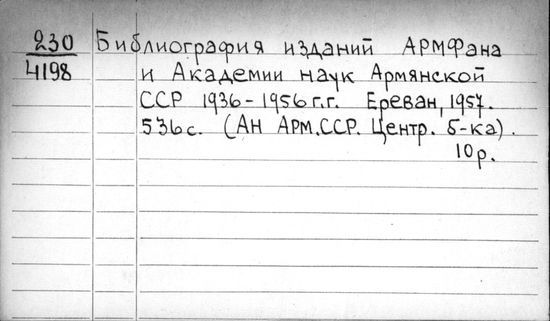 230 Библиография изданий АРМФана
4198 и Академии наук Армянской
ССР 1936-1956 г.г. Ереван, 1957.
536 с. (Ан Арм.ССР. Центр. б-ка).
10 р.